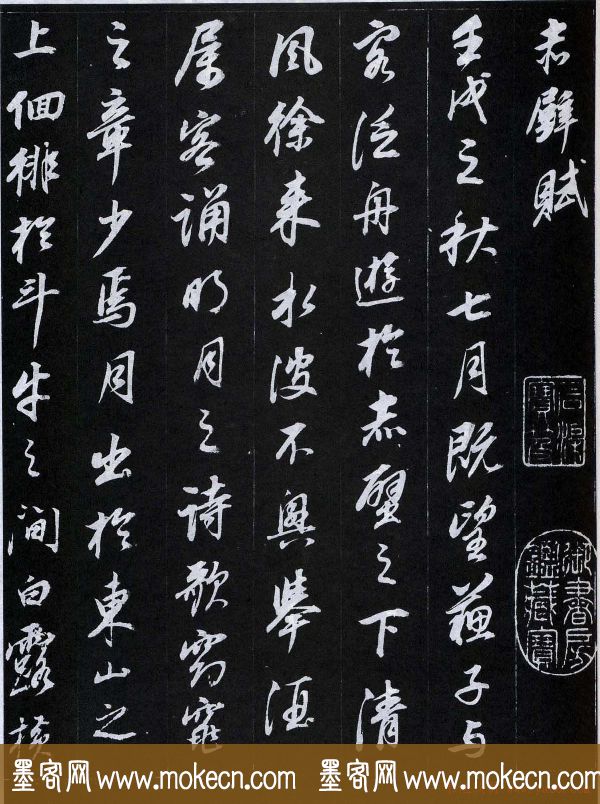 赤壁賦
壬戌之秋七月既望蘇子与
客泛舟遊於赤壁之下清
風徐来水波不興舉酒
屬客誦明月之詩歌窈窕
之章少焉月出於東山之
上徊徘於斗牛之間白露横
石渠寶笈
御書房鑑藏寶
墨客网 www.mokecn.com 墨客网 www.mokecn.com